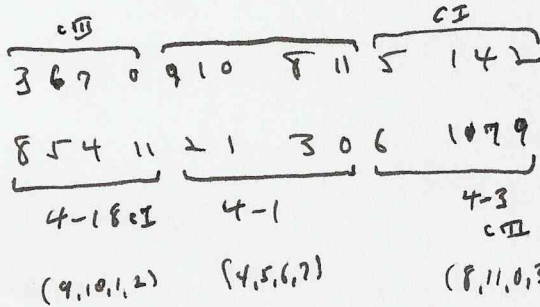 cIII cI
3 6 7 0 9 10 8 11 5 1 4 2
8 5 4 11 2 1 3 0 6 10 7 9
4-18 cI 4-1 4-3
cIII
(9,10,1,2) (4,5,6,7) (8,11,0,3